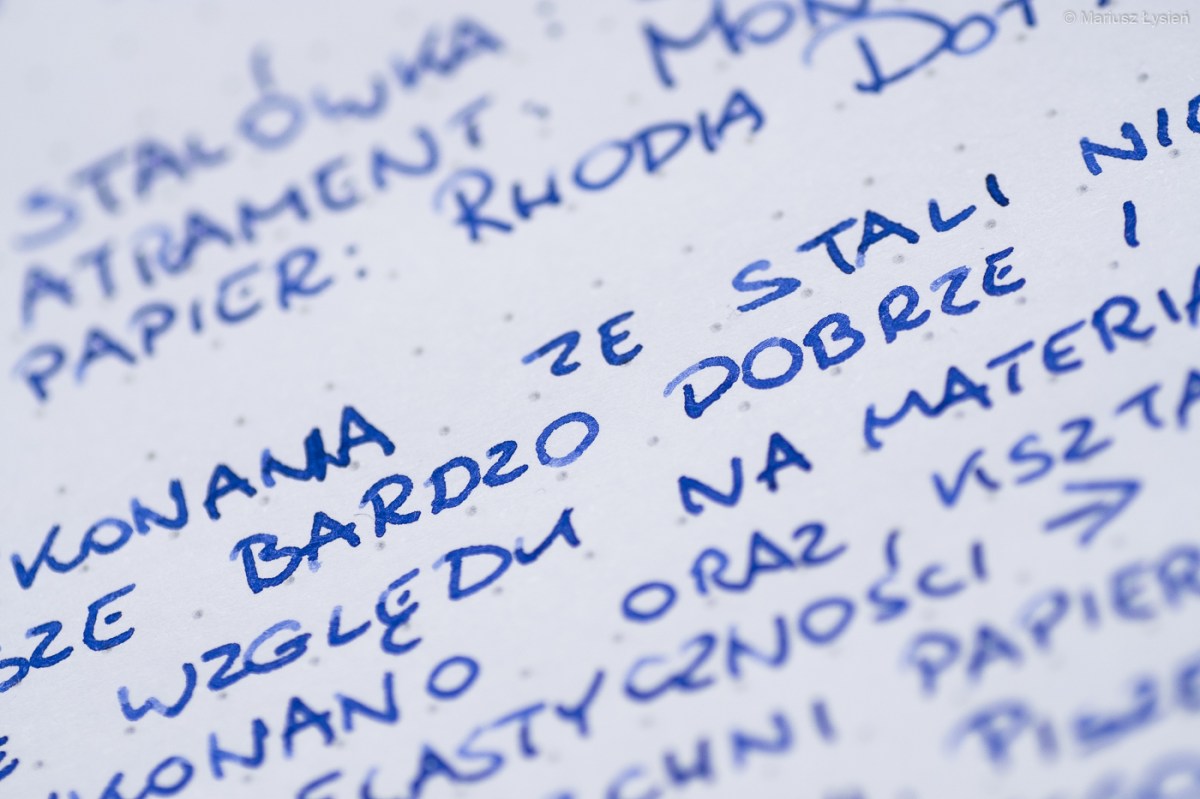 © Mariusz Łysień
STALÓWKA :
ATRAMENT: MON
PAPIER: RHODIA DOT
KONANA ZE STALI NI
SZE BARDZO DOBRZE I
E WZGLĘDU NA MATERIA
KONANO ORAZ KSZTA
ELASTYCZNOŚCI →
CHNI PAPIER
PISZE